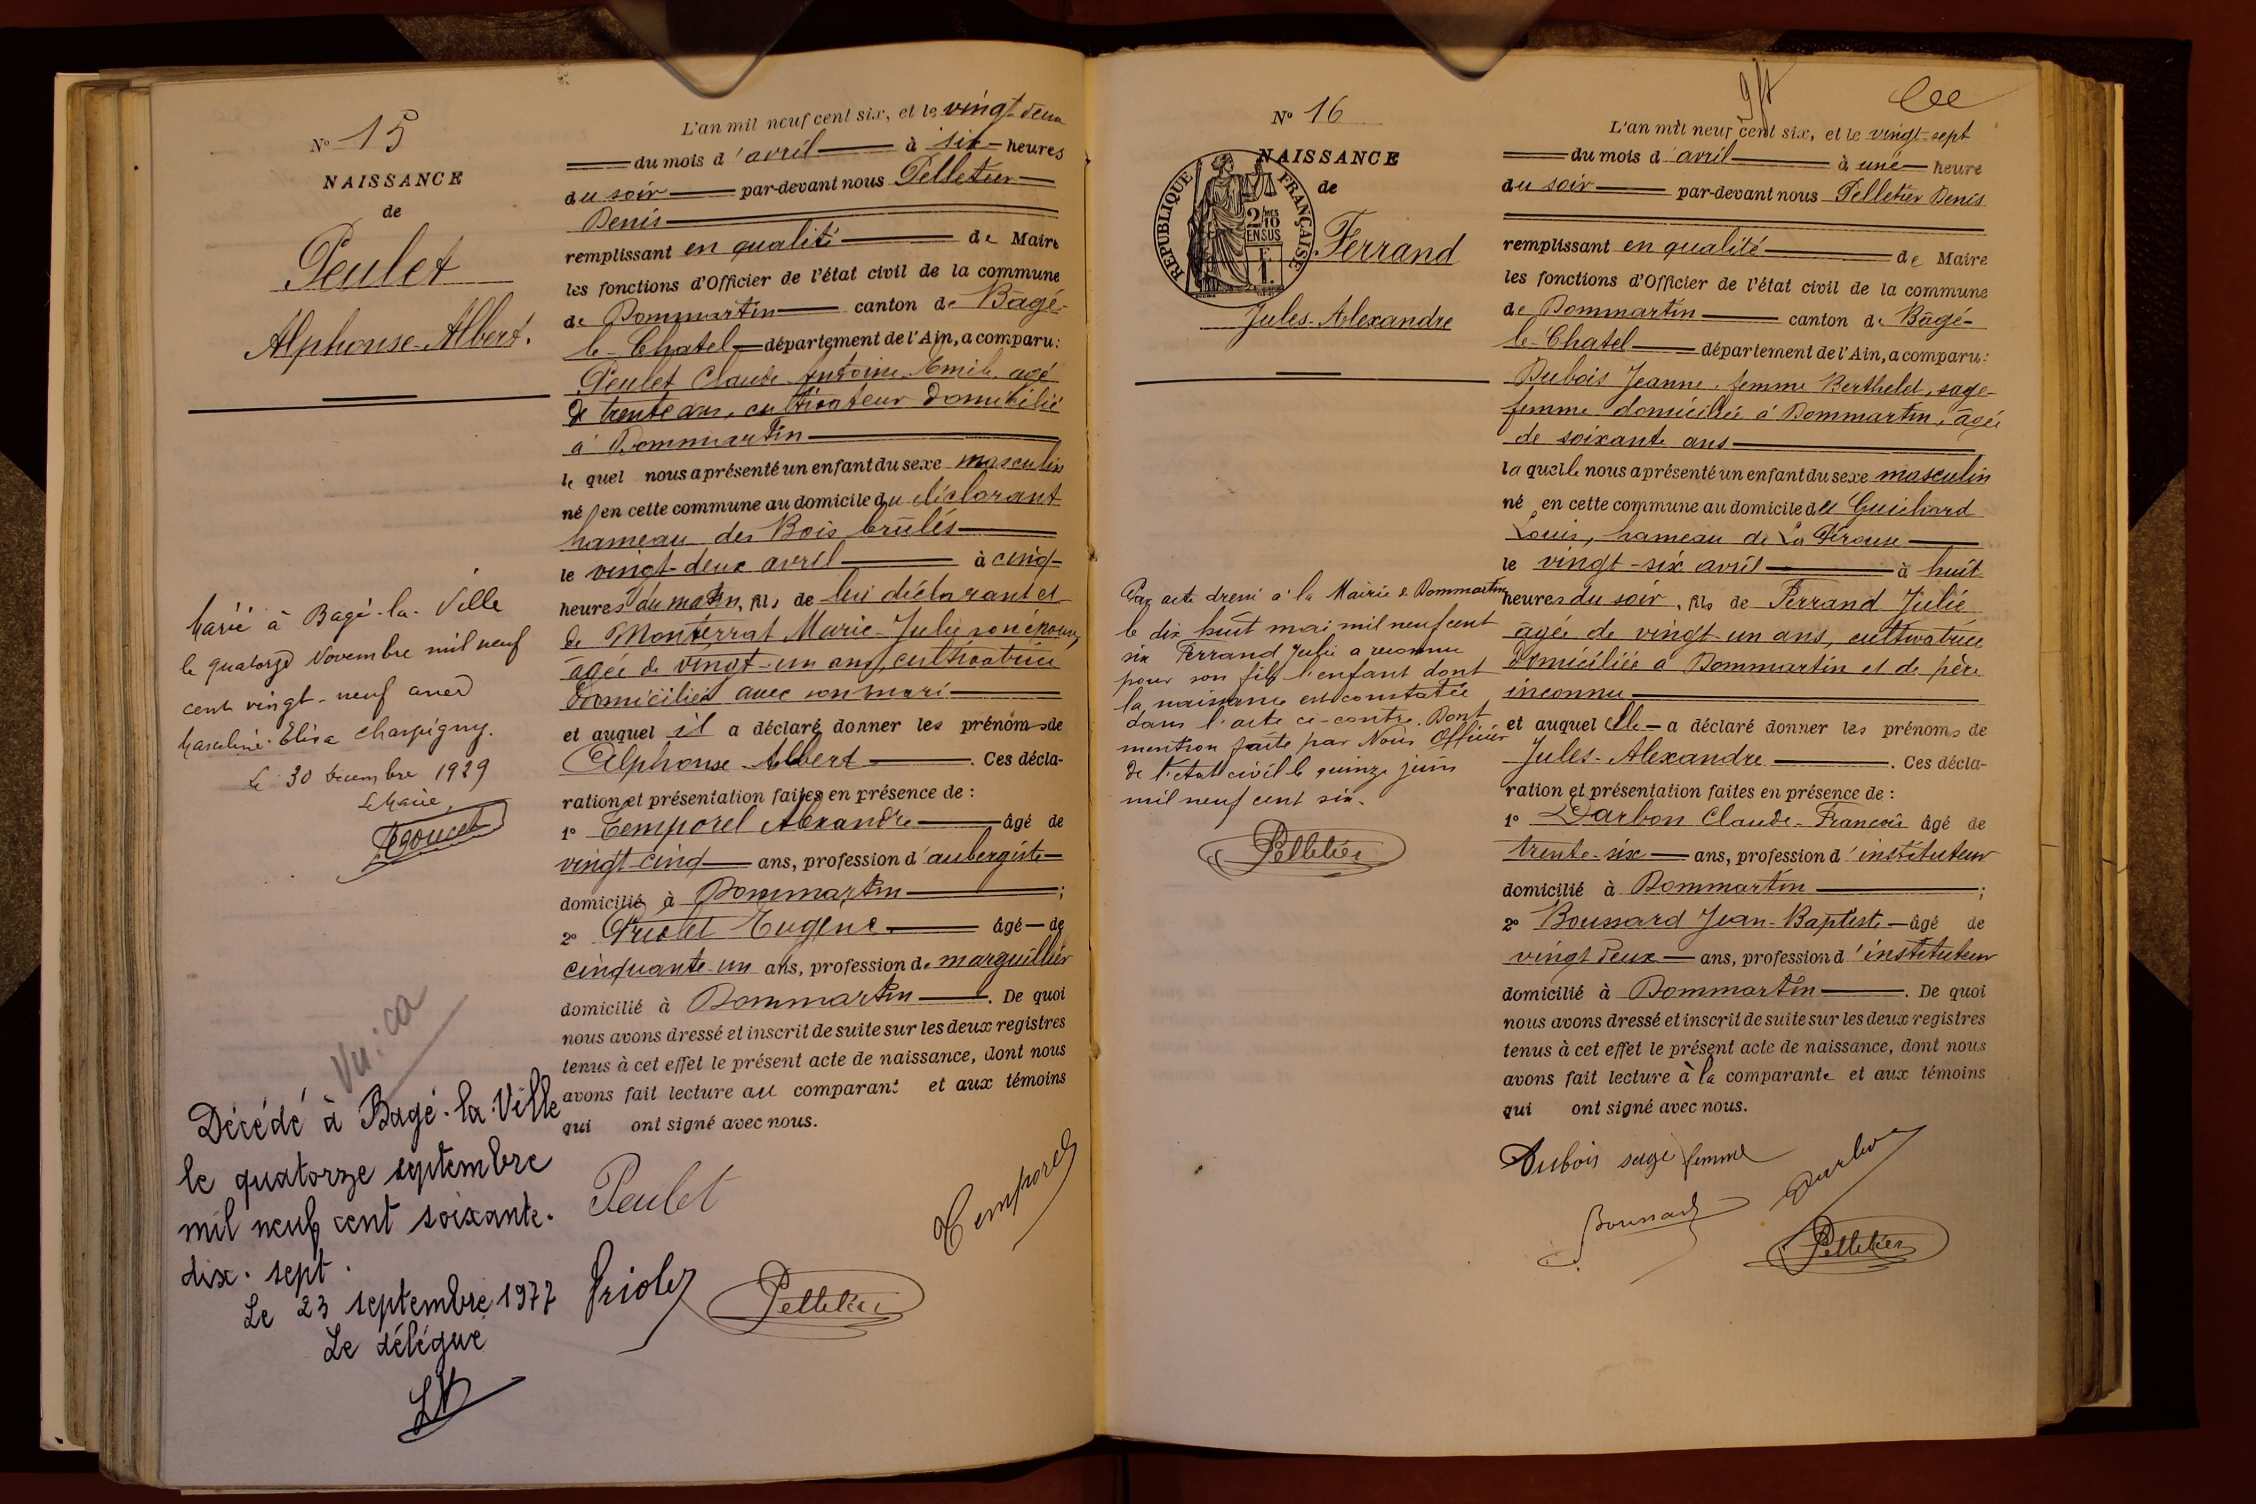 N° 15
NAISSANCE
de
Peulet
Alphonse-Albert.
Marié à Bagé-la-Ville
le quatorze Novembre mil neuf
cent vingt-neuf avec
Marceline-Elisa Charpigny.
Le 30 Décembre 1929
Le Maire,
Vu: ca
Décédé à Bagé-la-Ville
le quatorze septembre
mil neuf cent soixante-
dix-sept.
Le 23 septembre 1977
Le délégué
L'an mil neuf cent six, et le vingt-deux
du mois d'avril à six heures
du soir par-devant nous Pelletier
Denis
remplissant en qualité de Maire
les fonctions d'Officier de l'état civil de la commune
de Dommartin canton de Bâgé-
le-Chatel département de l'Ain, a comparu:
Peulet Claude Antoine Emile, agé
de trente ans, cultivateur domicilié
à Dommartin
le quel nous a présenté un enfant du sexe masculin
né en cette commune au domicile du déclarant
hameau des Bois brûlés
le vingt-deux avril à cinq
heures du matin, fils de lui déclarant et
de Monterrat Marie-Julie son épouse,
âgée de vingt-un ans, cultivatrice
domiciliée avec son mari
et auquel il a déclaré donner les prénoms de
Alphonse-Albert. Ces décla-
ration et présentation faites en présence de :
1° Temporel Alexandre âgé de
vingt-cinq ans, profession d'aubergiste
domicilié à Dommartin ;
2° Friolet Eugène âgé de
cinquante-un ans, profession de marguillier
domicilié à Dommartin. De quoi
nous avons dressé et inscrit de suite sur les deux registres
tenus à cet effet le présent acte de naissance, dont nous
avons fait lecture au comparant et aux témoins
qui ont signé avec nous.
Peulet
Temporel
Friolet
Pelletier
N° 16
NAISSANCE
de
RÉPUBLIQUE FRANÇAISE
2/10
EN SUS
Ferrand
Jules-Alexandre
Par acte dressé à la Mairie de Dommartin
le dix huit mai mil neuf cent
six Ferrand Julie a reconnu
pour son fils l'enfant dont
la naissance est constatée
dans l'acte ci-contre. Dont
mention faite par Nous Officier
de l'état civil le quinze juin
mil neuf cent six.
Pelletier
L'an mil neuf cent six, et le vingt-sept
du mois d'avril à une heure
du soir par-devant nous Pelletier Denis
remplissant en qualité de Maire
les fonctions d'Officier de l'état civil de la commune
de Dommartin canton de Bâgé-
le-Chatel département de l'Ain, a comparu:
Dubois Jeanne, femme Berthelet, sage-
femme domiciliée à Dommartin, âgée
de soixante ans
la quelle nous a présenté un enfant du sexe masculin
né en cette commune au domicile de Guichard
Louis, hameau de La Pérouse
le vingt-six avril à huit
heures du soir, fils de Ferrand Julie
âgée de vingt-un ans, cultivatrice
domiciliée à Dommartin et de père
inconnu
et auquel elle a déclaré donner les prénoms de
Jules-Alexandre. Ces décla-
ration et présentation faites en présence de :
1° Darbon Claude-François âgé de
trente-six ans, profession d'instituteur
domicilié à Dommartin ;
2° Boussard Jean-Baptiste âgé de
vingt deux ans, profession d'instituteur
domicilié à Dommartin. De quoi
nous avons dressé et inscrit de suite sur les deux registres
tenus à cet effet le présent acte de naissance, dont nous
avons fait lecture à la comparante et aux témoins
qui ont signé avec nous.
Dubois sage femme
Darbon
Boussard
Pelletier